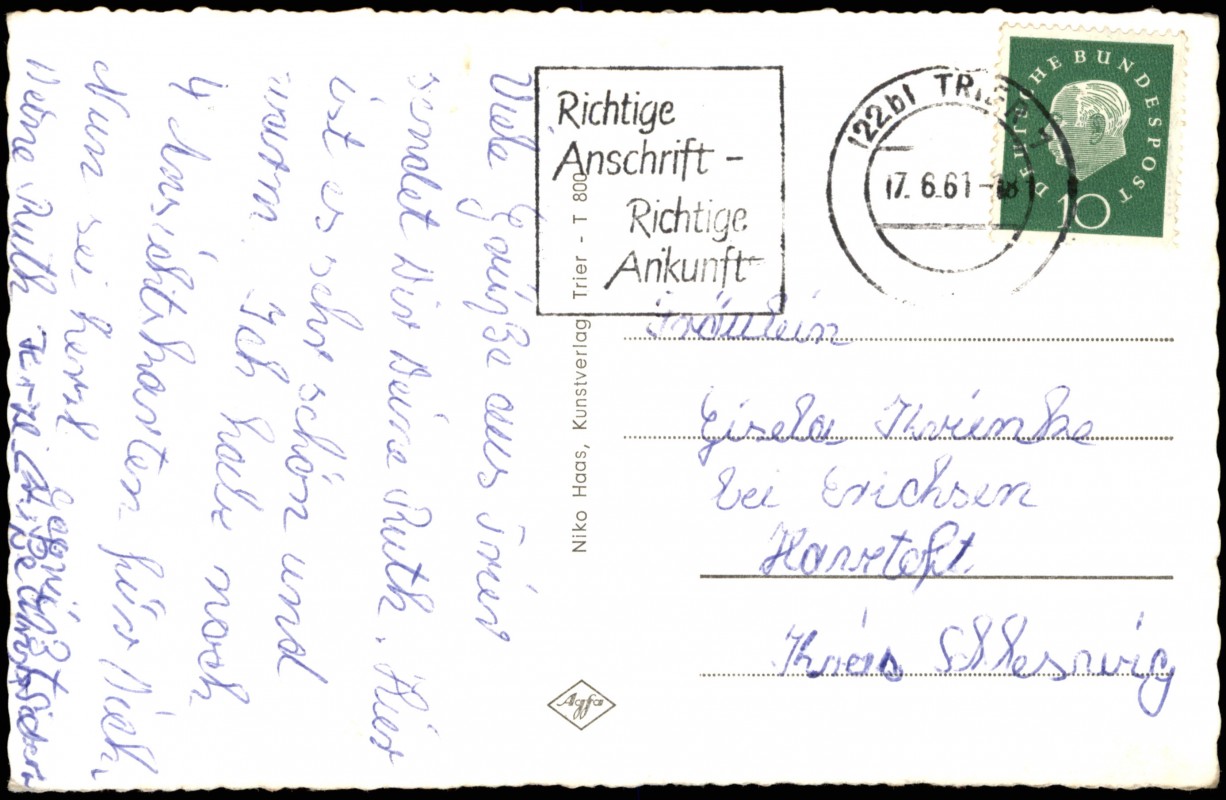 Viele Grüße aus Trier
sendet Dir Deine Ruth. Hier
ist es sehr schön und
warm. Ich habe noch
4 Ansichtskarten für Dich
Nun sei herzl. gegrüßt
Deine Ruth
Richtige
Anschrift –
Richtige
Ankunft
(22b) TRIER 1
17.6.61-18
DEUTSCHE BUNDESPOST
10
Niko Haas, Kunstverlag Trier - T 800
Fräulein
Gisela Krienke
bei Erichsen
Havetoft
Kreis Schleswig
Agfa